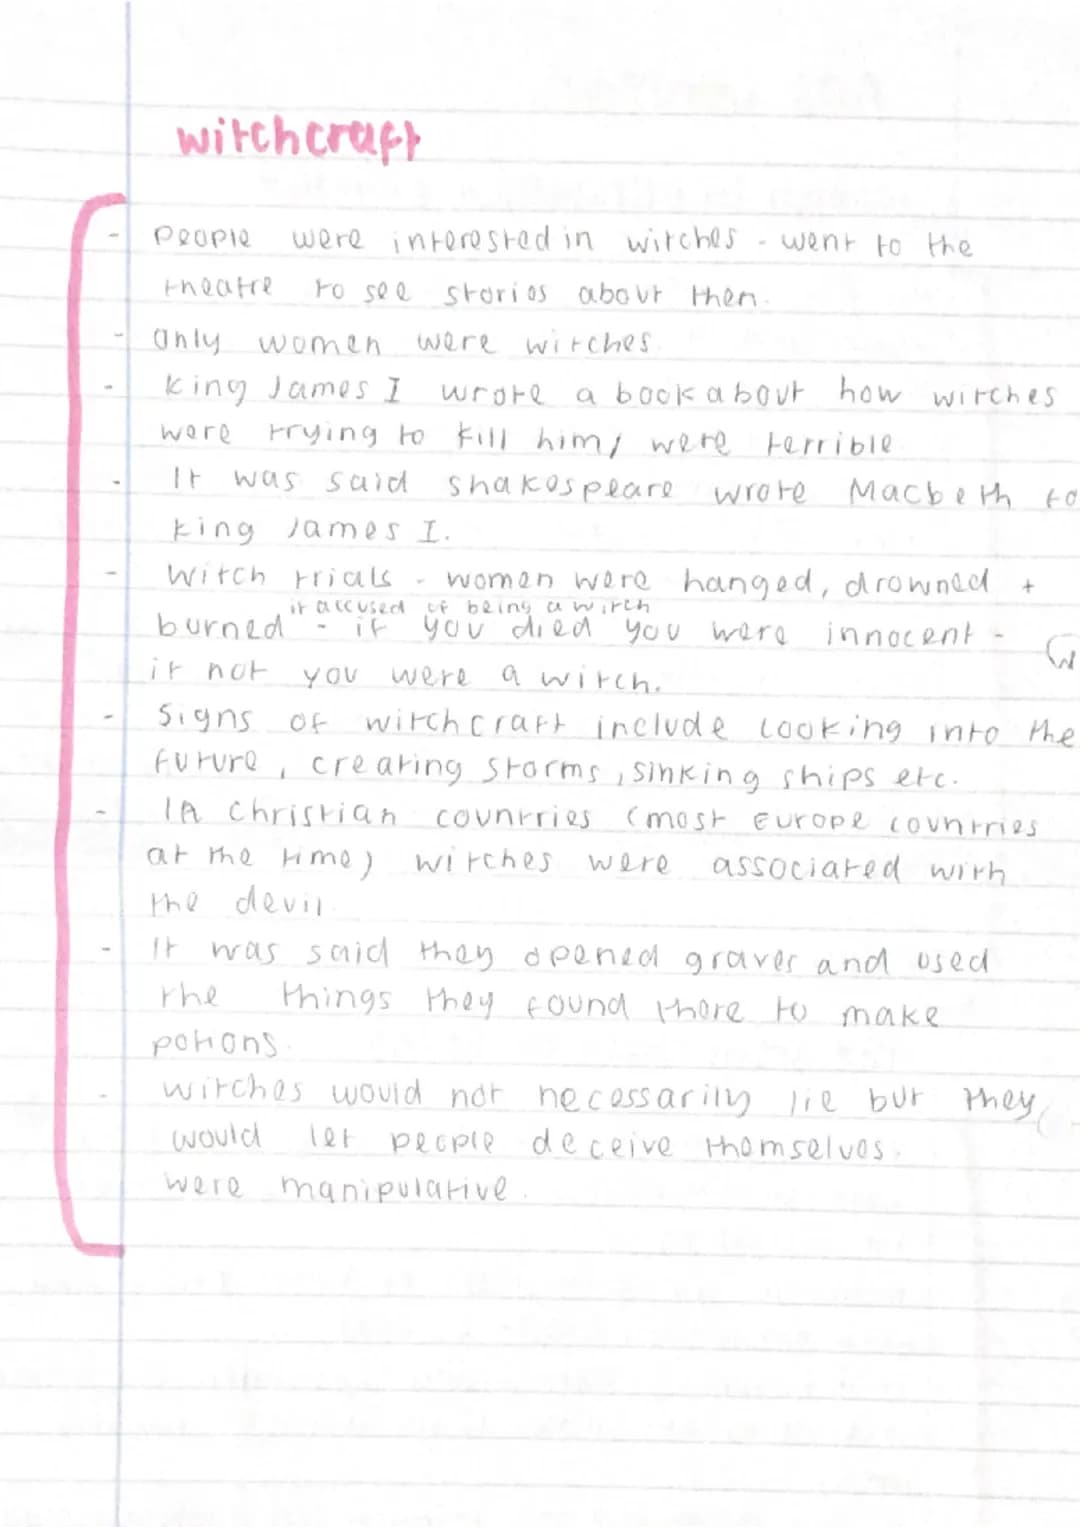 witchcraft
- People were interested in witches - went to the
theatre to see stories about then.
- Only women were witches.
- King James I wrote a book about how witches
were trying to kill him / were terrible
- It was said shakespeare wrote Macbeth to
king James I.
- Witch trials - women were hanged, drowned +
if accused of being a witch
burned - if you died you were innocent -
if not you were a witch.
- Signs of witchcraft include looking into the
future, creating storms, sinking ships etc.
- In christian countries (most Europe countries
at the time) witches were associated with
the devil
- It was said they opened graves and used
the things they found there to make
potions.
- witches would not necessarily lie but they
would let people deceive themselves.
were manipulative.